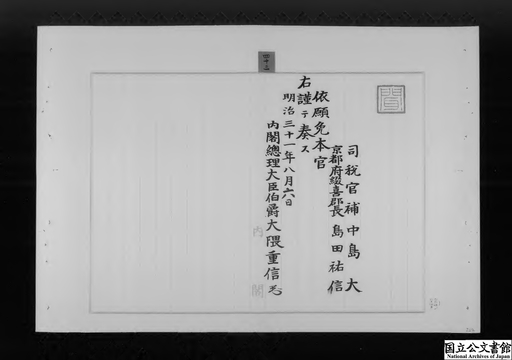 司税官補中島大
京都府綴喜郡長島田祐信
依願免本官
右謹テ奏ス
明治三十一年八月六日
内閣總理大臣伯爵大隈重信
内閣
国立公文書館
National Archives of Japan